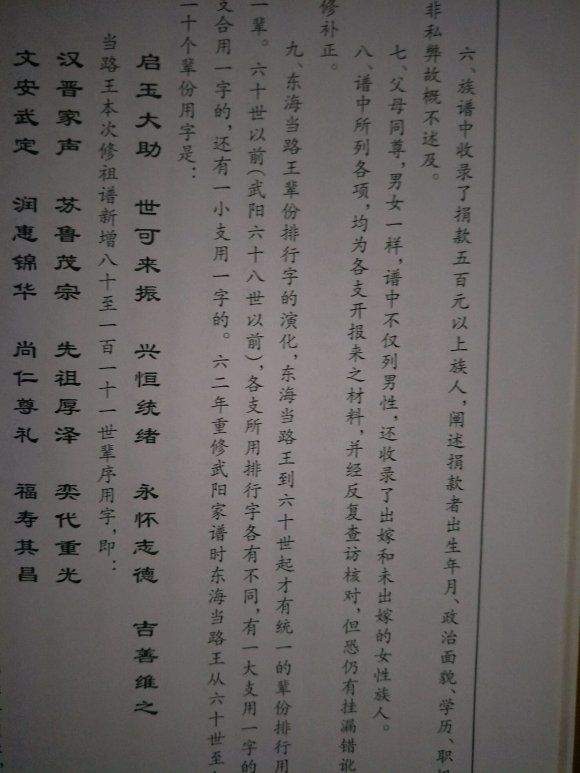 六、族谱中收录了捐款五百元以上族人，阐述捐款者出生年月、政治面貌、学历、职
非私弊故概不述及。
七、父母同尊，男女一样，谱中不仅列男性，还收录了出嫁和未出嫁的女性族人。
八、谱中所列各项，均为各支开报来之材料，并经反复查访核对，但恐仍有挂漏错讹
修补正。
九、东海当路王辈份排行字的演化，东海当路王到六十世起才有统一的辈份排行用
一辈。六十世以前（武阳六十八世以前），各支所用排行字各有不同，有一大支用一字的
合用一字的，还有一小支用一字的。六二年重修武阳家谱时东海当路王从六十世至
十个辈份用字是：
启玉大助 世可来振 兴恒统绪 永怀志德 吉善维之
当路王本次修祖谱新增八十至一百一十一世辈序用字，即：
汉晋家声 苏鲁茂宗 先祖厚泽 奕代重光
文安武定 润惠锦华 尚仁尊礼 福寿其昌